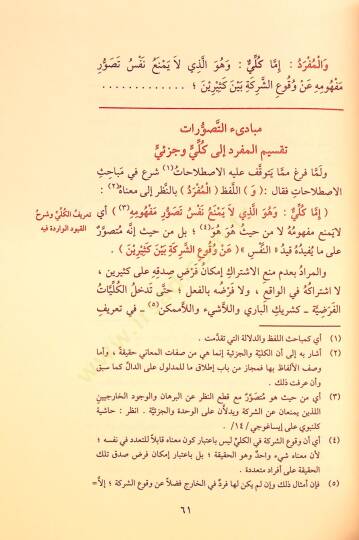 وَالْمُفْرَدُ : إِمَّا كُلِّيٌّ : وَهُوَ الَّذِي لَا يَمْنَعُ نَفْسُ تَصَوُّرِ
مَفْهُومِهِ عَنْ وُقُوعِ الشَّرِكَةِ بَيْنَ كَثِيْرِيْنَ ؛ . . . . . . . . . . . . .
مبادىء التّصوُّرات
تقسيم المفرد إلى كُلِّيٍّ وجزئيٍّ
ولَمَّا فرغ ممَّا يَتوقَّف عليه الاصطلاحاتُ (١) شرع في مَباحِثِ
الاصطلاحاتِ فقال : ( وَ ) اللَّفظ ( الْمُفْرَدُ ) بالنَّظر إلى معناهُ (٢) :
( إِمَّا كُلِّيٌّ : وَهُوَ الَّذِيْ لاَ يَمْنَعُ نَفْسُ تَصَوُّرِ مَفْهُوْمِهِ (٣) ) أي
لاَيَمنع مفهومُهُ لا من حيثُ هُوَ هُوَ (٤) ؛ بل من حيث إنَّه مُتصوَّرٌ
على ما يُفيدُهُ قيدُ « النَّفْسِ » ( عَنْ وُقُوعِ الشَّرِكَةِ بَيْنَ كَثِيْرِيْنَ ) .
تعريفُ الكُلِّيِّ وشرحُ
القيود الواردة فيه
والمرادُ بعدم منعِ الاشتراكِ إمكانُ فَرْضِ صِدقِهِ على كثيرين ،
لا اشتراكُهُ في الواقعِ ، ولا فَرْضُه بالفعل ؛ حتَّى تَدخُلَ الكُلِّيَّاتُ
الفَرْضِيَّة ـ كشريك الباري واللاَّشيء واللاَّممكن (٥) ـ في تعريفِ
(١) أي كمباحث اللفظ والدلالة التي تقدَّمت .
(٢) أشار به إلى أن الكليّة والجزئية إنما هي من صفات المعاني حقيقةً ، وأما
وصف الألفاظ بها فمجاز من باب إطلاق ما للمدلول على الدالّ كما سبق
وأن عرفت ذلك .
(٣) أي من حيث هو مُتَصَوَّرٌ مع قطع النظر عن البرهان والوجود الخارجيين
اللذين يمنعان عن الشركة ويدلاَّن على الوحدة والجزئيَّة . انظر : حاشية
كلنبوي على إيساغوجي /١٤/ .
(٤) أي أن وقوع الشركة في الكليِّ ليس باعتبار كون معناه قابلاً للتعدد في نفسه ؛
لأن معناه شيء واحدٌ وهو الحقيقة ؛ بل باعتبار إمكان فرض صدق تلك
الحقيقة على أفراد متعددة .
(٥) فإن أمثال ذلك وإن لم يكن لها فردٌ في الخارج فضلاً عن وقوع الشركة ؛ إلاَّ=
٦١